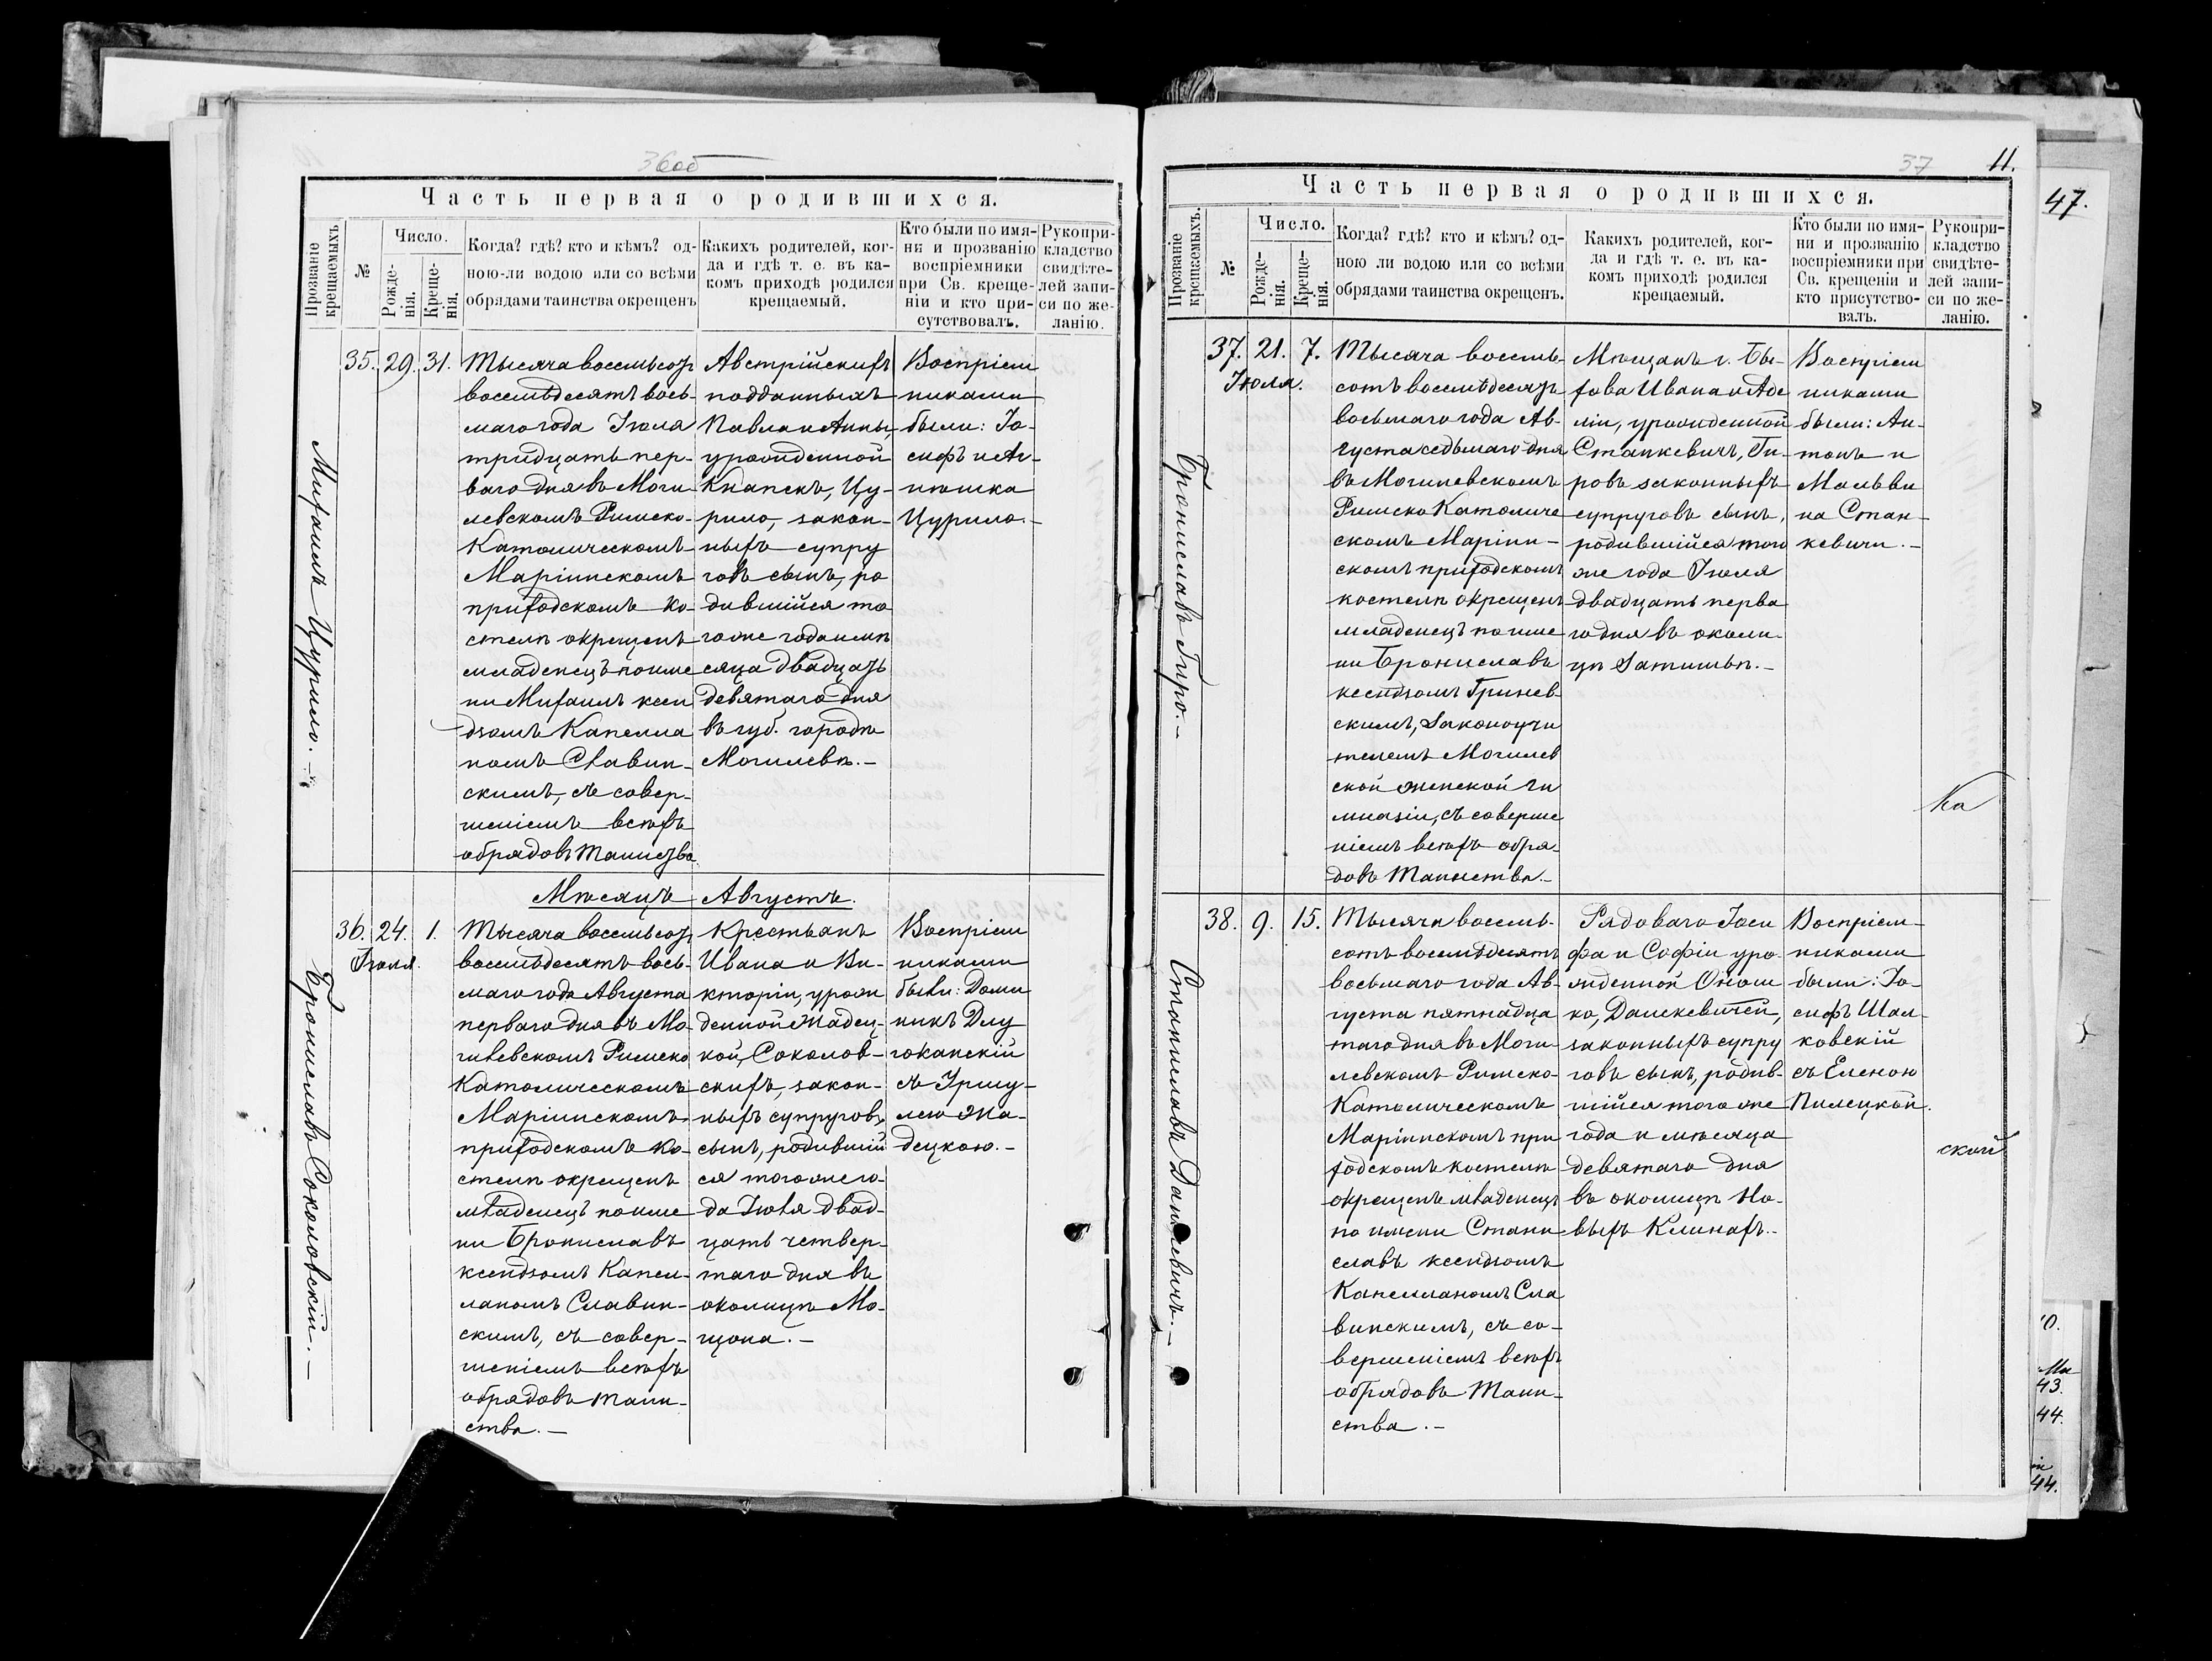 36об
Часть первая о родившихся.
Прозваніе крещаемыхъ
№
Число.
Рожде-
нія.
Креще-
нія.
Когда? гдѣ? кто и кѣмъ? од-
ною-ли водою или со всѣми
обрядами таинства окрещенъ
Какихъ родителей, ког-
да и гдѣ т. е. въ ка-
комъ приходѣ родился
крещаемый.
Кто были по имя-
ни и прозванію
воспріемники
при Св. креще-
ніи и кто при-
сутствовалъ.
Рукопри-
кладство
свидѣте-
лей запи-
си по же-
ланію.
Михаилъ Цурило.-
35. 29. 31.
Тысяча восемьсотъ
восемьдесятъ вось-
маго года Іюля
тридцать пер-
ваго дня въ Моги-
левскомъ Римско-
Католическомъ
Маріинскомъ
приходскомъ ко-
стелѣ окрещенъ
младенецъ по име
ни Михаилъ ксен
дзомъ Капелла
номъ Славин-
скимъ, съ совер-
шеніемъ всѣхъ
обрядовъ Таинства.
Австрійскихъ
подданныхъ
Павла и Анны,
урожденной
Кнапекъ, Цу-
рило, закон-
ныхъ супру
говъ сынъ, ро
дившійся то
гоже года и мѣ
сяца двадцать
девятаго дня
въ губ. городѣ
Могилевѣ.-
Воспріем
никами
были: Іо-
сифъ и Аг-
нѣшка
Цурило.-
Мѣсяцъ Августъ.
Брониславъ Соколовскій.-
36. 24. 1.
Іюля.
Тысяча восемьсотъ
восемьдесятъ вось-
маго года Августа
перваго дня въ Мо-
гилевскомъ Римско
Католическомъ
Маріинскомъ
приходскомъ ко-
стелѣ окрещенъ
младенецъ по име
ни Брониславъ
ксендзомъ Капел-
ланомъ Славин-
скимъ, съ совер-
шеніемъ всѣхъ
обрядовъ Таин-
ства.-
Крестьянъ
Ивана и Ви-
кторіи, урож
денной Жадец-
кой, Соколов-
скихъ, закон-
ныхъ супруговъ
сынъ, родившій
ся тогоже го-
да Іюля двад-
цать четвер-
таго дня въ
околицѣ Мо-
щона.-
Воспріем
никами
были: Доми
никъ Длу
гоканскій
съ Уршу-
лею Жа-
децкою.-
37 11.
Часть первая о родившихся.
Прозваніе крещаемыхъ.
№
Число.
Рожде-
нія.
Креще-
нія.
Когда? гдѣ? кто и кѣмъ? од-
ною ли водою или со всѣми
обрядами таинства окрещенъ.
Какихъ родителей, ког-
да и гдѣ т. е. въ ка-
комъ приходѣ родился
крещаемый.
Кто были по имя-
ни и прозванію
воспріемники при
Св. крещеніи и
кто присутство-
валъ.
Рукопри-
кладство
свидѣте-
лей запи-
си по же-
ланію.
Брониславъ Гиро.-
37. 21. 7.
Іюля.
Тысяча восемь-
сотъ восемьдесятъ
восьмаго года Ав-
густа седьмаго дня
въ Могилевскомъ
Римско Католиче
скомъ Маріин-
скомъ приходскомъ
костелѣ окрещенъ
младенецъ по име
ни Брониславъ
ксендзомъ Гринев-
скимъ, Законоучи
телемъ Могилев
ской женской ги
мназіи, съ соверше
ніемъ всѣхъ обря-
довъ Таинства.-
Мѣщанъ г. Бы-
хова Ивана и Аде
ліи, урожденной
Станкевичъ, Ги-
ровъ законныхъ
супруговъ сынъ,
родившійся того
же года Іюля
двадцать перва
го дня въ околи-
цѣ Затишьѣ.-
Воспріем
никами
были: Ан-
тонъ и
Мальви
на Стан-
кевичи.-
Ка
Станиславъ Даниевичъ.-
38. 9. 15.
Тысяча восемь-
сотъ восемьдесятъ
восьмаго года Ав-
густа пятнадца
таго дня въ Моги-
левскомъ Римско-
Католическомъ
Маріинскомъ при
ходскомъ костелѣ
окрещенъ младенецъ
по имени Стани
славъ ксендзомъ
Капелланомъ Сла
винскимъ, съ со-
вершеніемъ всѣхъ
обрядовъ Таин-
ства.-
Рядоваго Іоси
фа и Софіи уро-
жденной Онош
ко, Даискевичей,
законныхъ супру
говъ сынъ, родив-
шійся того же
года и мѣсяца
девятаго дня
въ околицѣ Но-
выхъ Клинахъ.-
Воспріем-
никами
были: Іо-
сифъ Шал-
ковскій
съ Еленою
Пилецкой.
ской
47.
43.
44.
44.